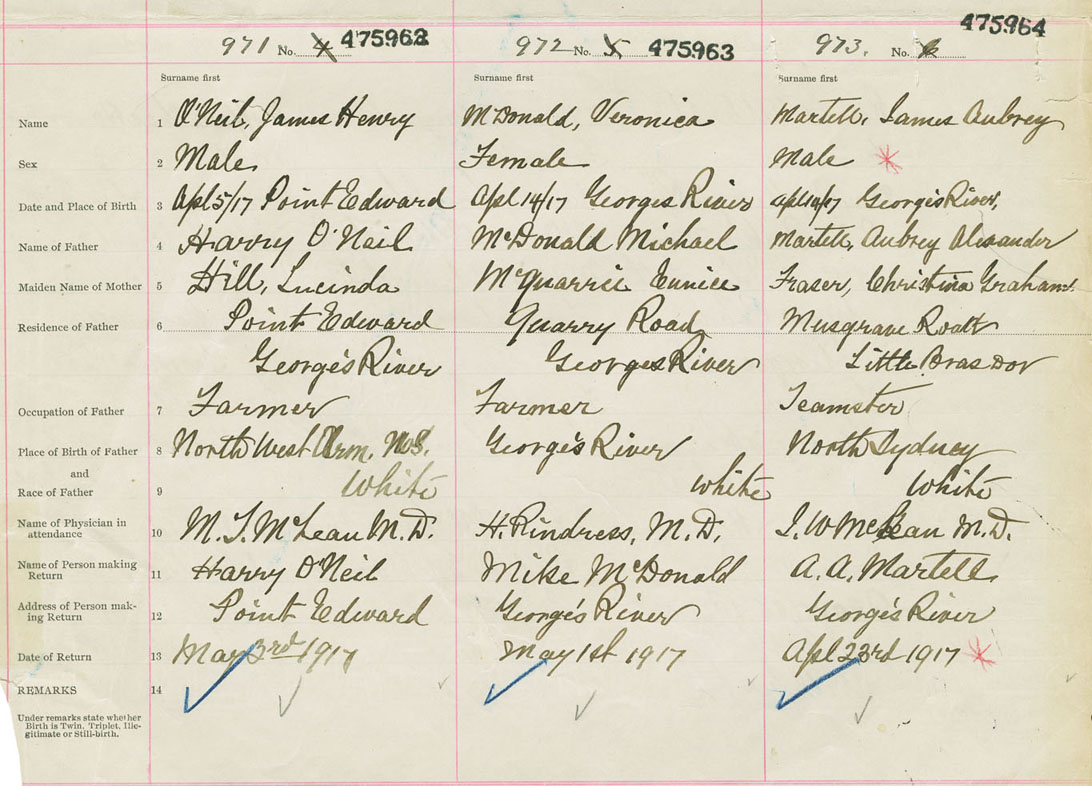 971 No. 4 475962
972 No. 5 475963
973. No. 6 475964
Surname first
Surname first
Surname first
Name 1 O'Neil, James Henry
McDonald, Veronica
Martell, James Aubrey
Sex 2 Male
Female
Male
Date and Place of Birth 3 Apl 5/17 Point Edward
Apl 14/17 Georges River
Apl 14/17 George's River,
Name of Father 4 Harry O'Neil
McDonald Michael
Martell, Aubrey Alexander
Maiden Name of Mother 5 Hill, Lucinda
McQuarrie Eunice
Fraser, Christina Graham
Residence of Father 6 Point Edward
Quarry Road
Musgrave
George's River
Georges River
Little Bras Dor
Occupation of Father 7 Farmer
Farmer
Teamster
Place of Birth of Father 8 North West Arm. N.S.
George's River
North Sydney
and
Race of Father 9 White
White
White
Name of Physician in
attendance 10 M. T. McLean M.D.
H. Rindress, M.D.
J. W McLean M.D.
Name of Person making
Return 11 Harry O'Neil
Mike McDonald
A. A. Martell
Address of Person mak-
ing Return 12 Point Edward
George's River
George's River
Date of Return 13 May 3rd 1917
May 1st 1917
Apl 23rd 1917
REMARKS 14
Under remarks state whether
Birth is Twin, Triplet, Ille-
gitimate or Still-birth.